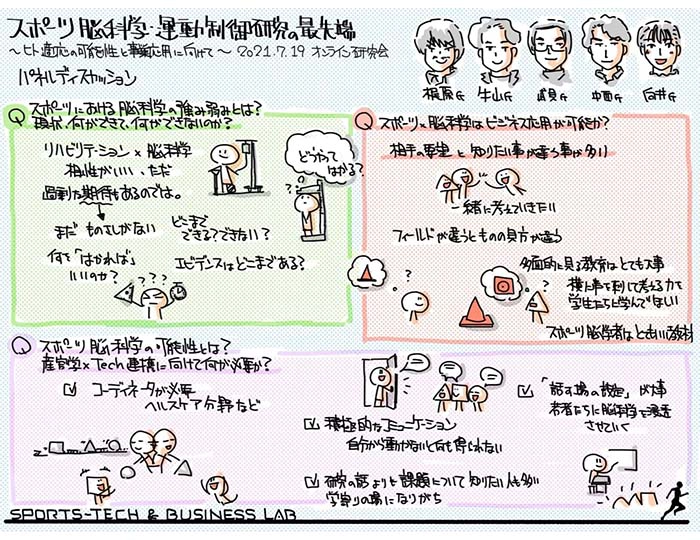 スポーツ脳科学・運動制御研究の最先端
～ヒト適応の可能性と事業応用に向けて～ 2021.7.19 オンライン研究会
パネルディスカッション
柏原氏 牛山氏 眞貝氏 中西氏 向井氏
Q スポーツにおける脳科学の強み弱みとは?
現状、何ができて、何ができないのか?
リハビリテーション×脳科学
相性がいい、ただ
過剰な期待もあるのでは。
どうやって
はかる?
まだ ものさしがない
どこまで
できる?できない?
何を「はかれば」
いいのか?
エビデンスはどこまである?
???
Q スポーツ×脳科学はビジネス応用が可能か?
相手の要望と知りたい事が違う事が多い
一緒に考えていきたい
フィールドが違うとものの見方が違う
多面的に見る教育はとても大事
横に事を割いて考える力を
学生たちに学んでほしい
スポーツ脳学者はともいい教材
Q スポーツ脳科学の可能性とは?
産官学×Tech連携に向けて何が必要か?
コーディネータが必要
ヘルスケア分野など
積極的なコミュニケーション
自分から動かないと何も得られない
研究の話よりも課題について知りたい人も多い
学寄りの場になりがち
「話す場の設定」が大事
若者たちに脳科学を浸透
させていく
SPORTS-TECH & BUSINESS LAB